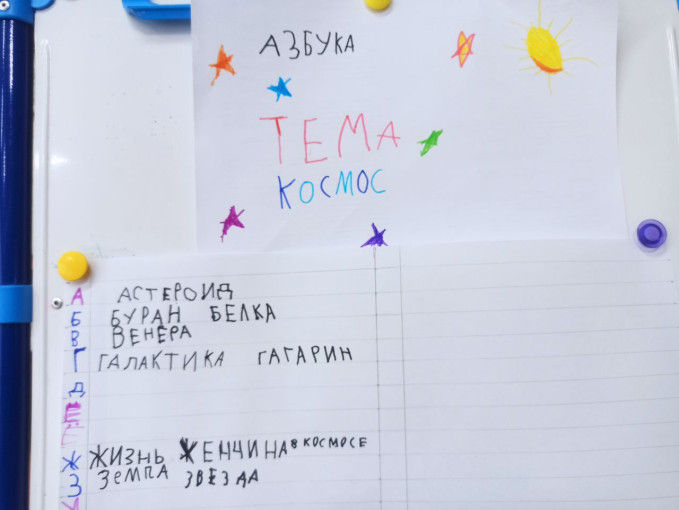 АЗБУКА
ТЕМА
КОСМОС
А АСТЕРОИД
Б БУРАН БЕЛКА
В ВЕНЕРА
Г ГАЛАКТИКА ГАГАРИН
Д
Ж ЖИЗНЬ ЖЕНЧИНА В КОСМОСЕ
З ЗЕМЛА ЗВЕЗДА